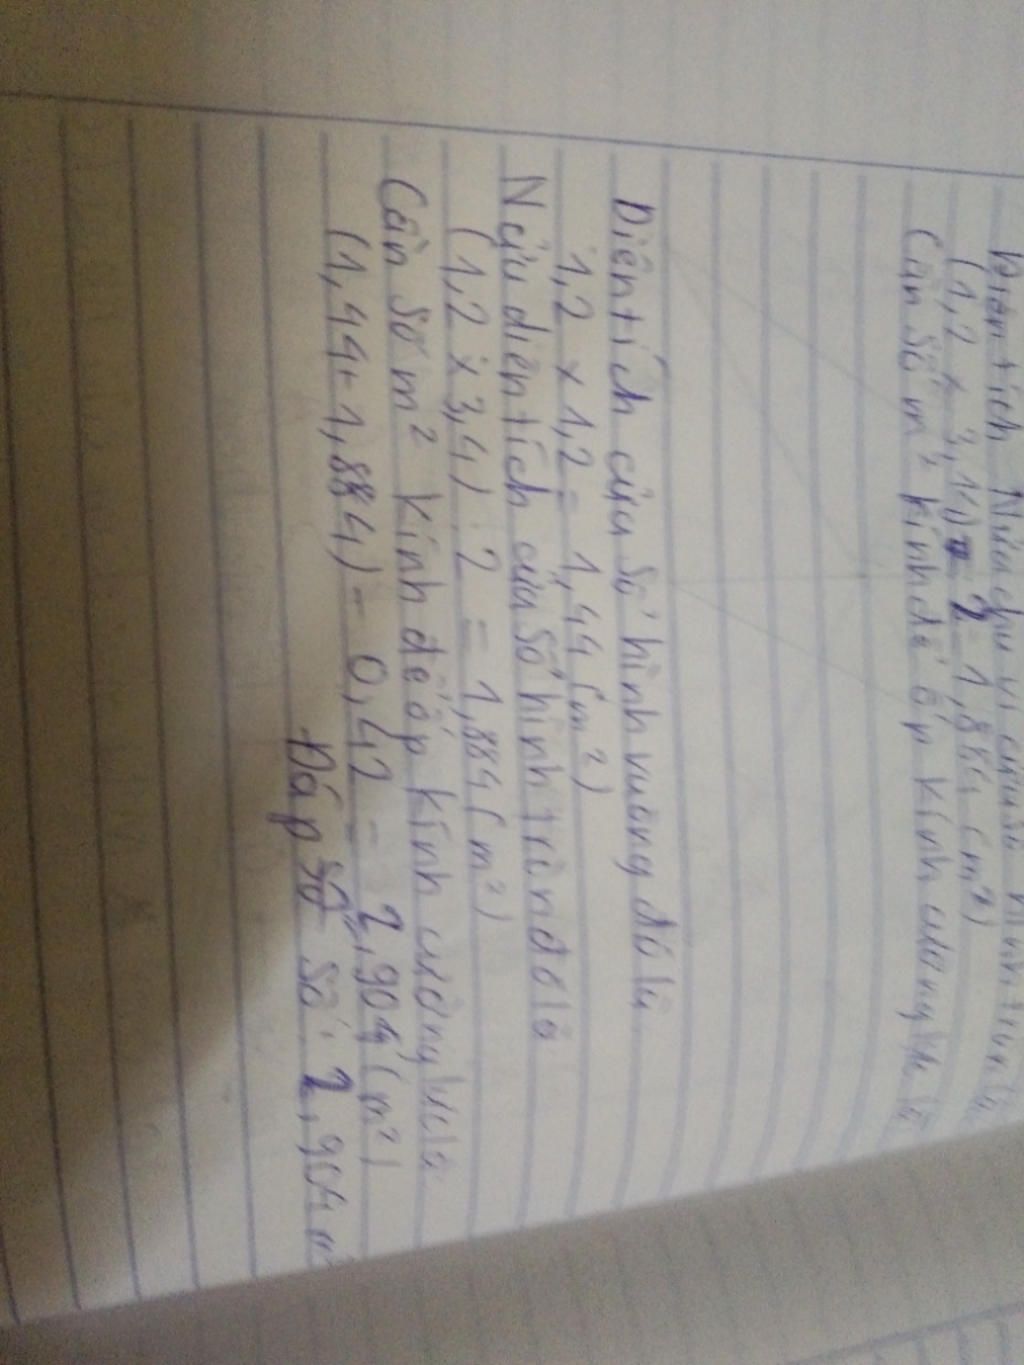 Diện tích Nửa chu vi cửa sổ hình tròn là
(1,2 x 3,14) : 2 = 1,884 (m²)
Cần số m² kính để ốp kính cường lực là
Diện tích cửa sổ hình vuông đó là
1,2 x 1,2 = 1,44 (m²)
Nửa diện tích cửa sổ hình tròn đó là
(1,2 x 3,4) : 2 = 1,884 (m²)
Cần số m² kính để ốp kính cường lực là
(1,44 + 1,884) - 0,42 = 2,904 (m²)
Đáp số số: 2,904 m²